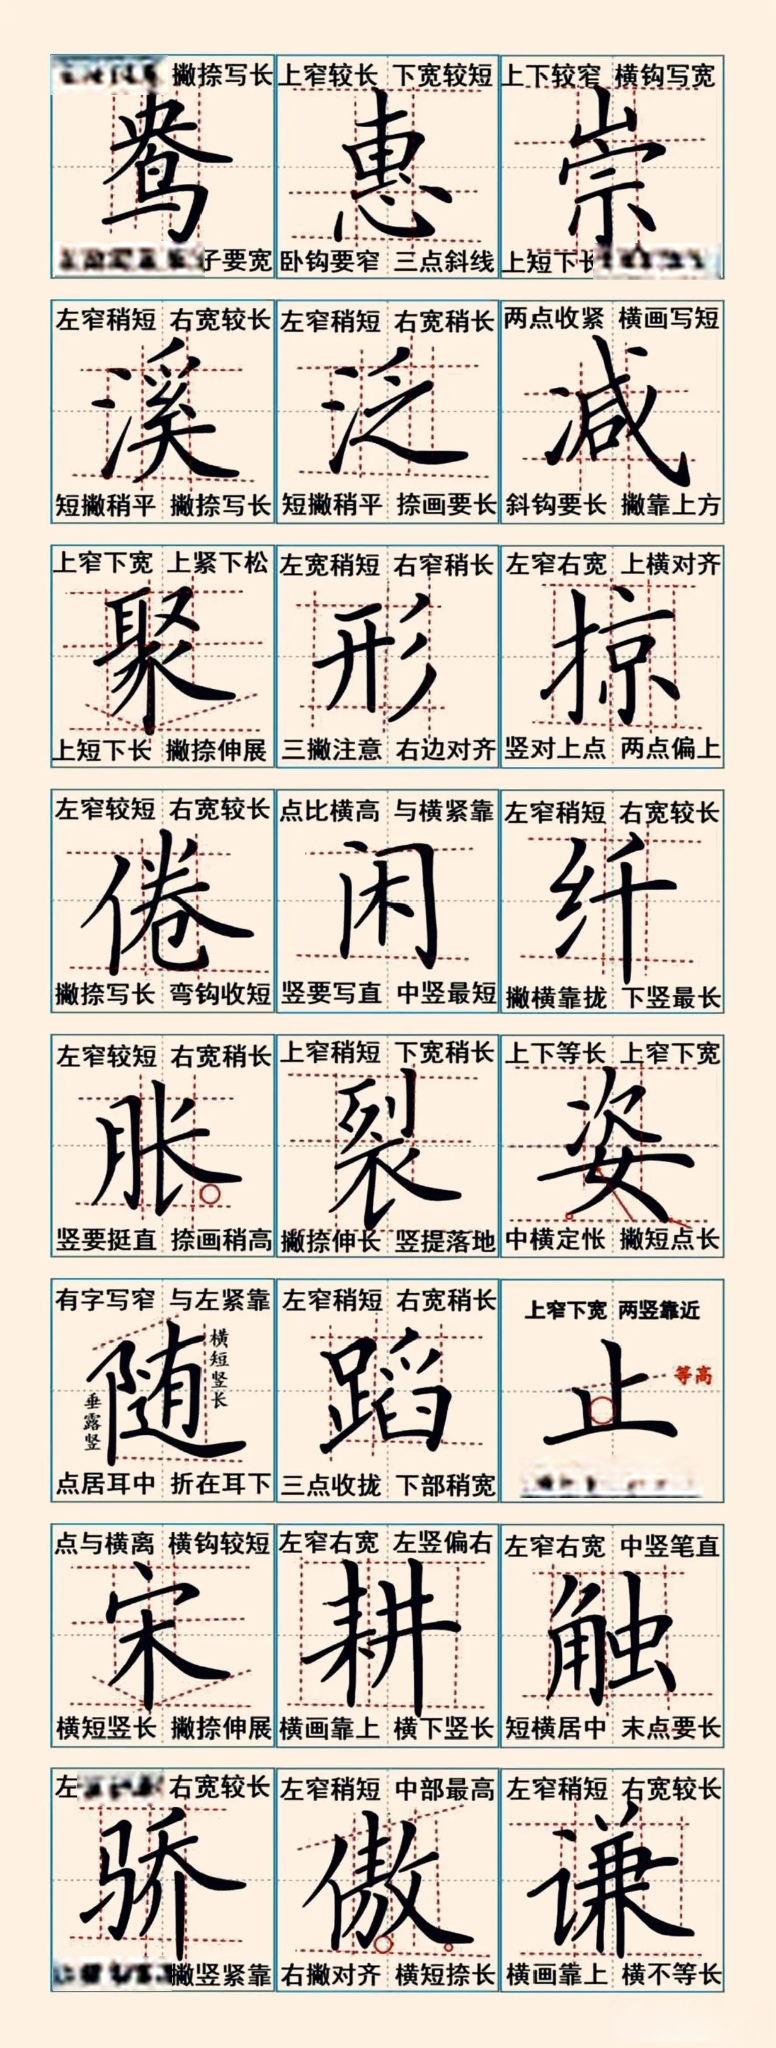 撇捺写长
鸯
子要宽
上窄较长 下宽较短
惠
卧钩要窄 三点斜线
上下较窄 横钩写宽
崇
上短下长
左窄稍短 右宽较长
溪
短撇稍平 撇捺写长
左窄稍短 右宽稍长
泛
短撇稍平 捺画要长
两点收紧 横画写短
减
斜钩要长 撇靠上方
上窄下宽 上紧下松
聚
上短下长 撇捺伸展
左宽稍短 右窄稍长
形
三撇注意 右边对齐
左窄右宽 上横对齐
掠
竖对上点 两点偏上
左窄较短 右宽较长
倦
撇捺写长 弯钩收短
点比横高 与横紧靠
闲
竖要写直 中竖最短
左窄稍短 右宽较长
纤
撇横靠拢 下竖最长
左窄较短 右宽稍长
胀
竖要挺直 捺画稍高
上窄稍短 下宽稍长
裂
撇捺伸长 竖提落地
上下等长 上窄下宽
姿
中横定怅 撇短点长
有字写窄 与左紧靠
随
横短竖长
垂露竖
点居耳中 折在耳下
左窄稍短 右宽稍长
蹈
三点收拢 下部稍宽
上窄下宽 两竖靠近
止
等高
点与横离 横钩较短
宋
横短竖长 撇捺伸展
左窄右宽 左竖偏右
耕
横画靠上 横下竖长
左窄右宽 中竖笔直
触
短横居中 末点要长
左 右宽较长
骄
撇竖紧靠
左窄稍短 中部最高
傲
右撇对齐 横短捺长
左窄稍短 右宽较长
谦
横画靠上 横不等长